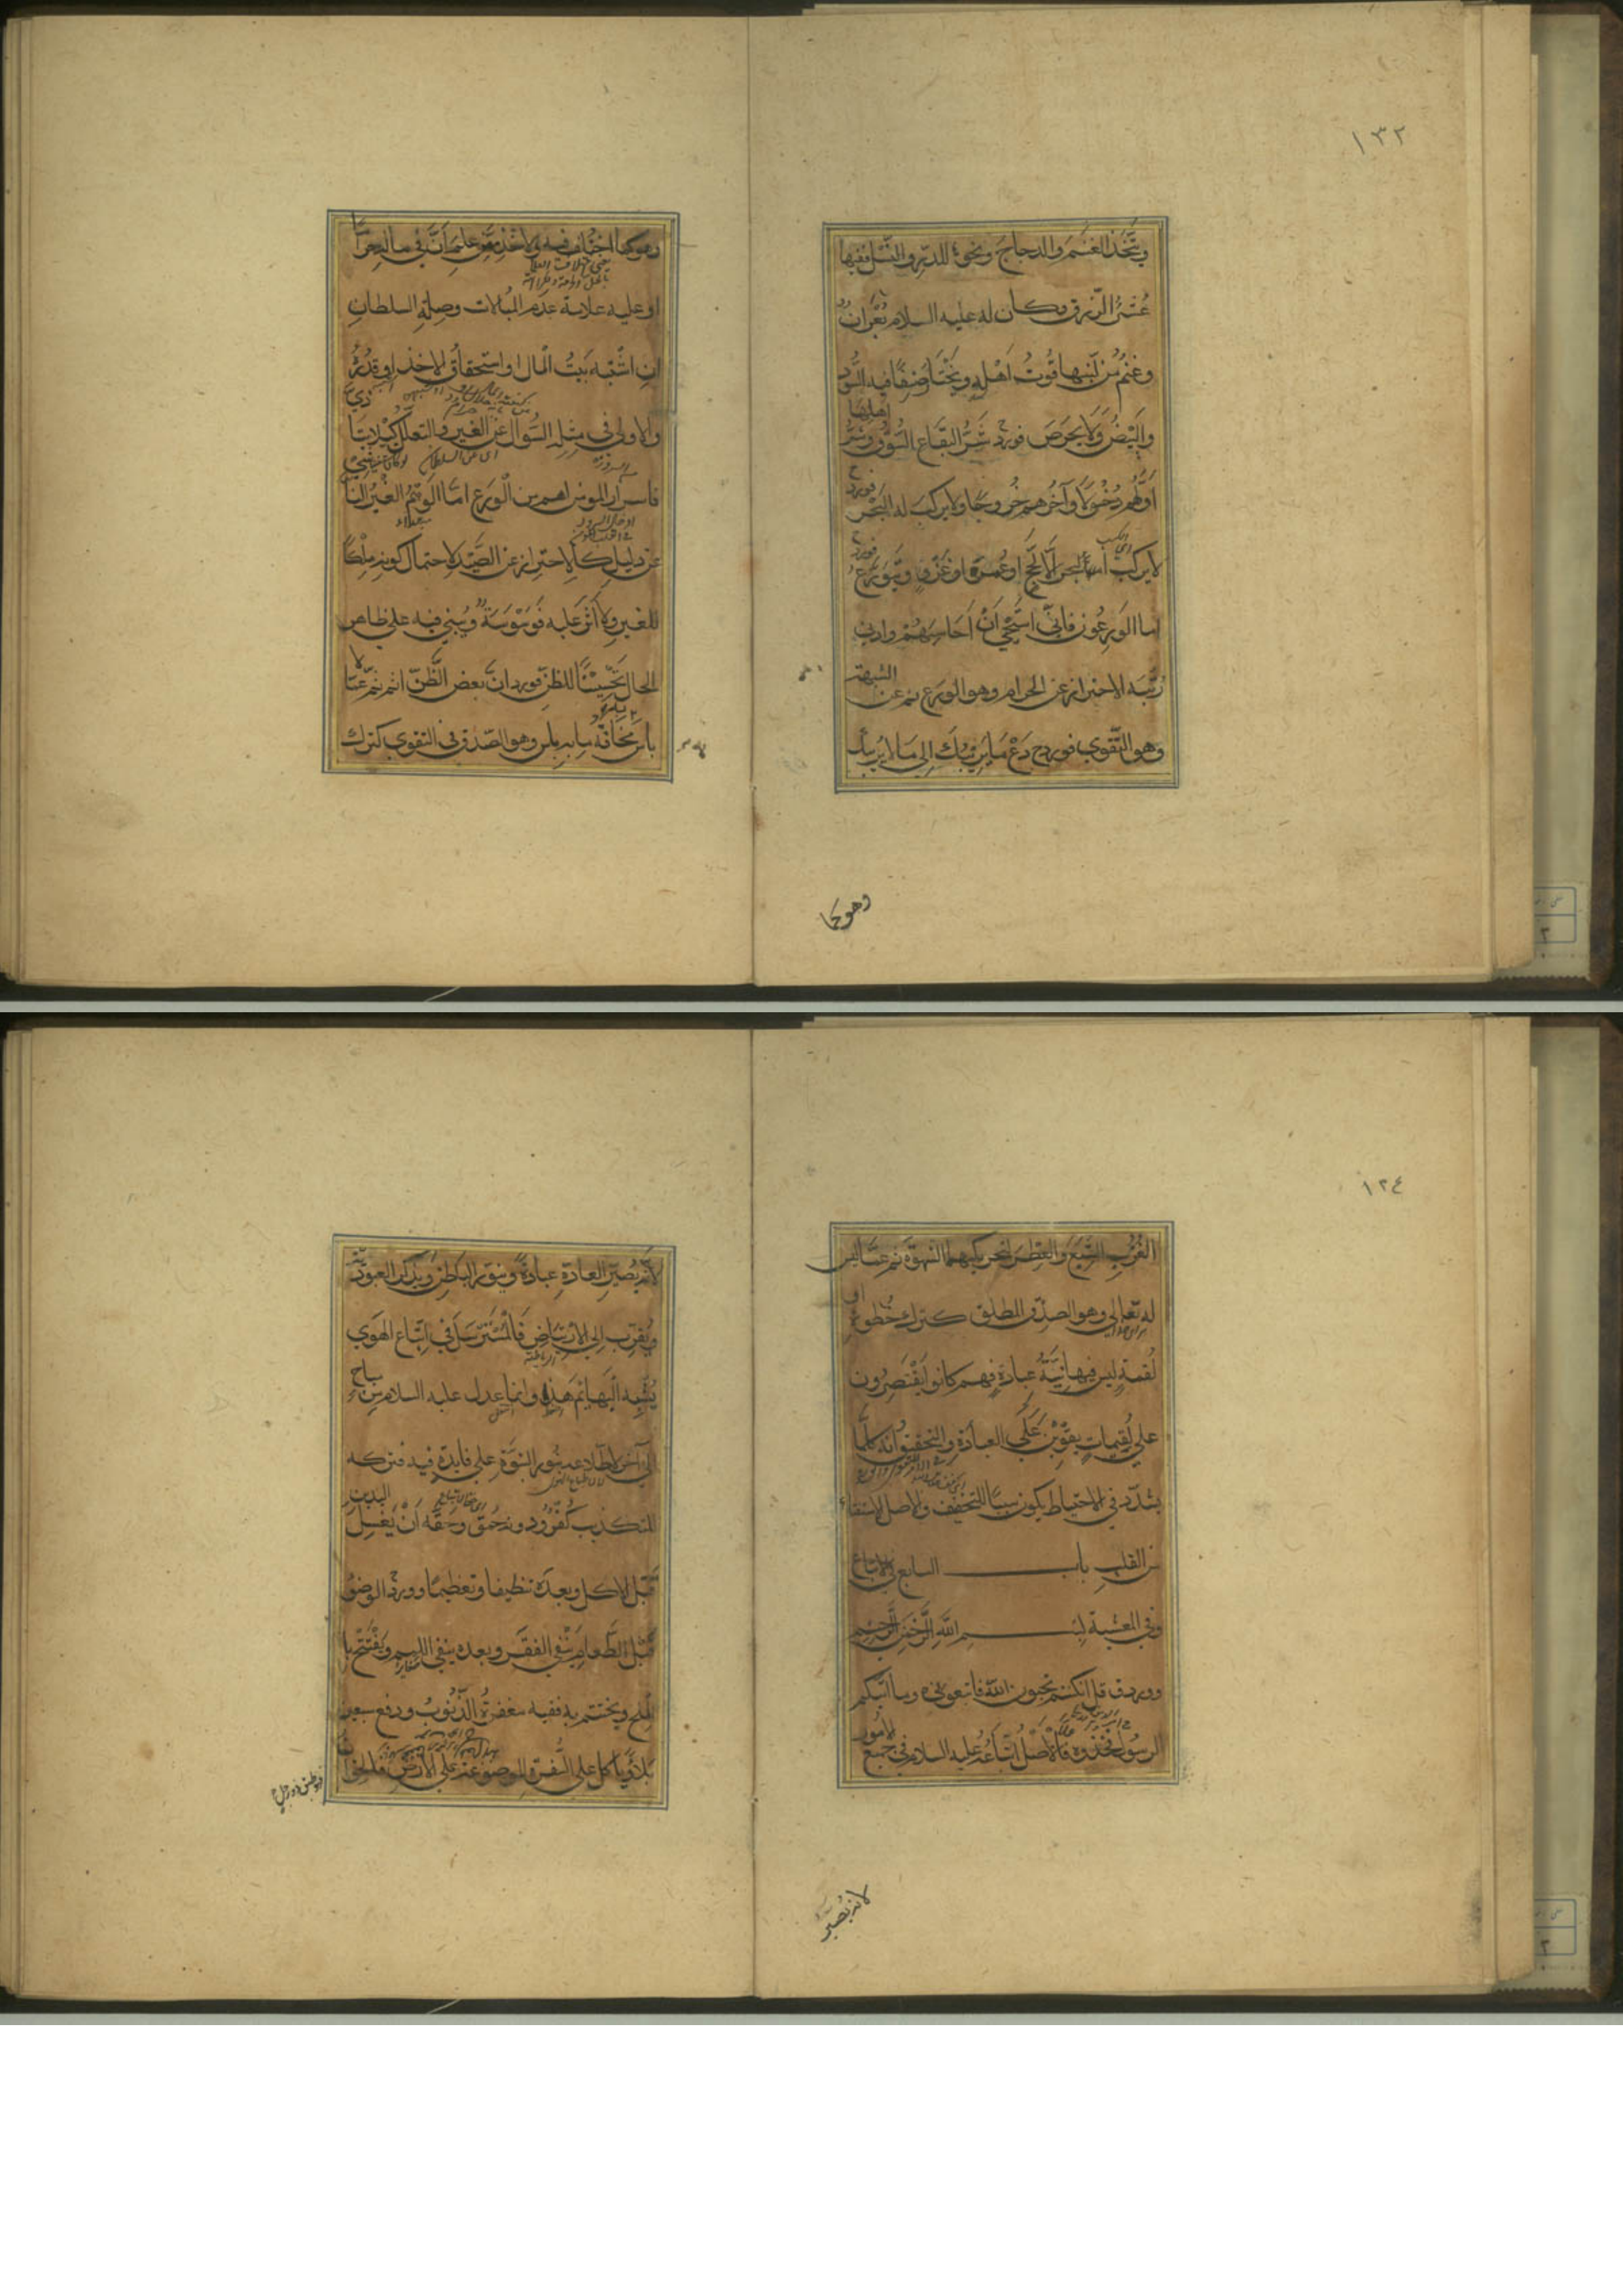 ١٣٢
ويتخذ الغنم والدجاج ونحوه للدر والنسل ففيها
عشر الرزق وكان له عليه السلام بعران
وغنم من لبنها قوت اهله ويختار صنفا فيه السود
والبيض ولا يحرص فورد شر البقاع السوق وشر اهلها
اولهم دخولا وآخرهم خروجا ولا يركب له البحر فورد
لا يركب البحر الا لحج او عمرة او غزو ويتورع
اما الورعون فاني استحيي ان احاسبهم وادنى
رتبه الاحتراز عن الحرام وهو الورع ثم عن الشبهة
وهو التقوى فورد دع ما يريبك الى ما لا يريبك
وهو كما
وهو كما اختلف فيه والاخذ ممن علم ان في ماله حراما
او عليه علامة عدم المبالات وصلة السلطان
ان اشتبه بيت المال او استحقاق الاخذ او قدره
والاولى في مثله السؤال عن الغير والتعلل كيلا يتاذى
فاسرار المؤمن اهم من الورع اما التوهم الغير الناشئ
عن دليل كالاحتراز عن الصيد لاحتمال كونه ملكا
للغير ولا اثر عليه فوسوسة ويبني فيه على ظاهر
الحال تحسينا للظن فورد ان بعض الظن اثم ثم عما لا
باس مخافة ما به باس وهو الصدق في التقوى كترك
١٣٤
العزب الشبع والعطر لتحريكهما الشهوة ثم عما ليس
له تعالى وهو الصدق المطلق كترك خطوة او
لقمة ليس فيها نية عبادة فهم كانوا يقتصرون
على لقيمات يقوين على العبادة والتحقيق انه كلما
يشدد في الاحتياط يكون سببا للتخفيف والاصل الاستفتاء
من القلب باب السابع في الاتباع
وفي المعيشة بسم الله الرحمن الرحيم
وورد ق قل ان كنتم تحبون الله فاتبعوني وما اتيكم
الرسول فخذوه فالاصل اتباعه عليه السلام في جميع الامور
لانه يصير
لانه يصير العادة عبادة وينور الباطن ويذكر العبودية
ويقرب الى الارتياض فالمسترسل في اتباع الهوى
يشبه البهائم هذا وانما عدل عليه السلام من مباح
الى آخر لاطلاعه بنور النبوة على فايدة فيه فتركه
للتكذيب كفر ودونه حمق وحقه ان يغسل اليدين
قبل الاكل وبعده تنظيفا وتعظيما وورد الوضوء
قبل الطعام ينفي الفقر وبعده ينفي اللمم ويفتتح با
لملح ويختتم به ففيه مغفرة الذنوب ودفع سبعين
بلاء وياكل على السفرة الموضوعة على الارض